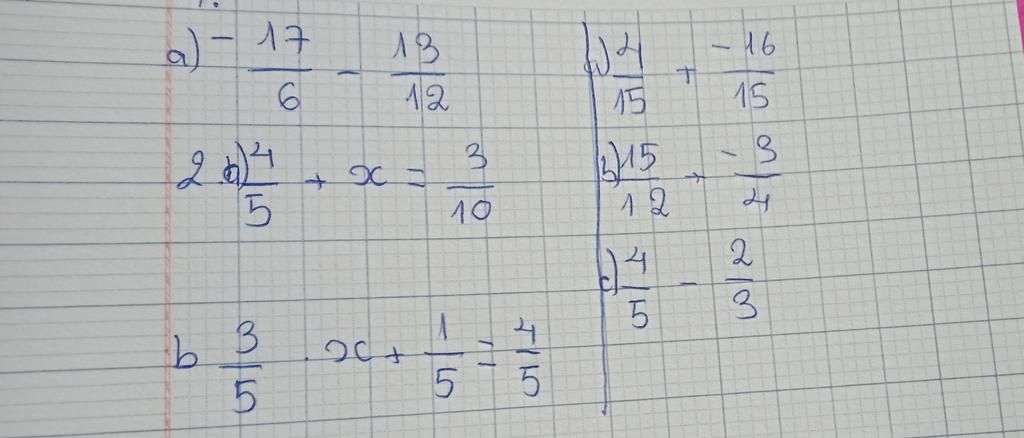 a) - 17/6 - 13/12
2. a) 4/5 + x = 3/10
b 3/5 . x + 1/5 = 4/5
4/15 + -16/15
b) 15/12 + -3/4
c) 4/5 - 2/3